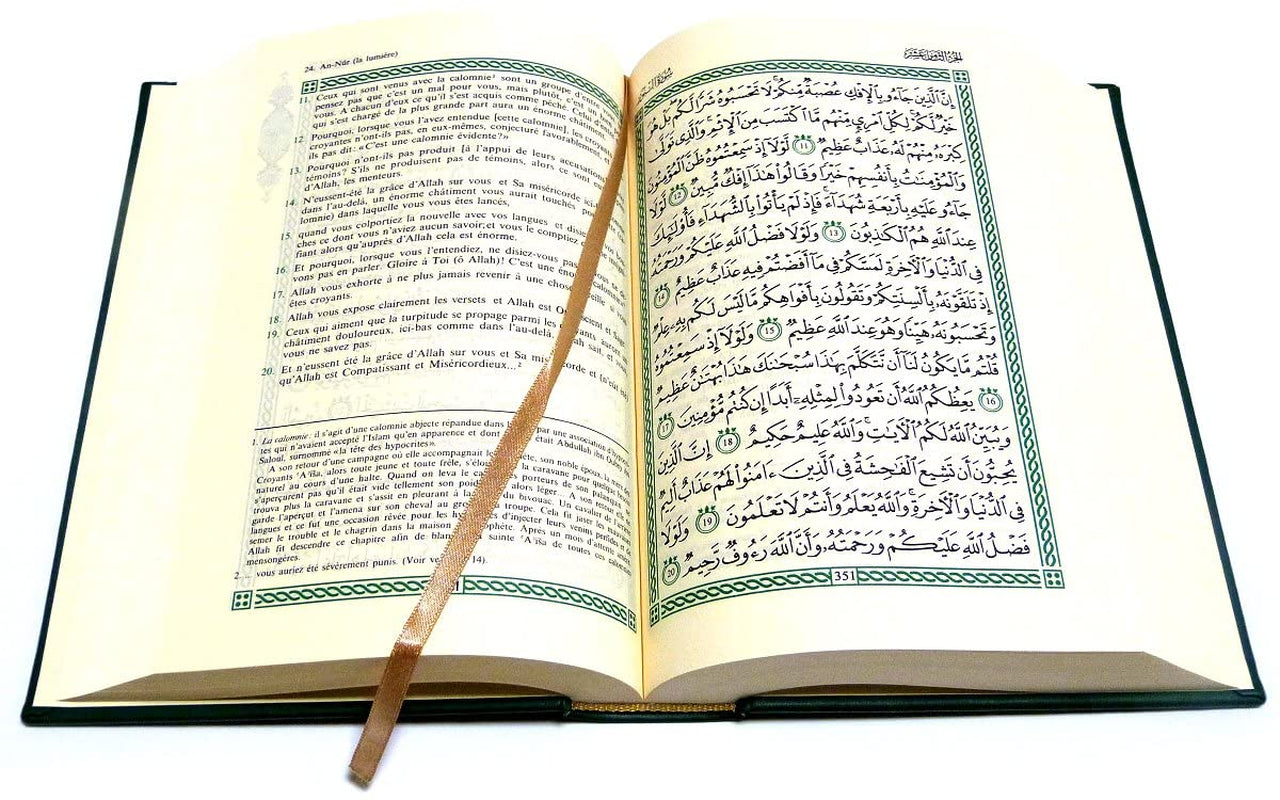 24. An-Nûr (la lumière)
11. Ceux qui sont venus avec la calomnie¹ sont un groupe d'entre
pensez pas que c'est un mal pour vous, mais plutôt, c'est un
vous. A chacun d'eux ce qu'il s'est acquis comme péché. Celui
qui s'est chargé de la plus grande part aura un énorme châtiment
12. Pourquoi, lorsque vous l'avez entendue [cette calomnie], les croyants
croyantes n'ont-ils pas, en eux-mêmes, conjecturé favorablement, et
ils pas dit: «C'est une calomnie évidente?»
13. Pourquoi n'ont-ils pas produit [à l'appui de leurs accusations]
témoins? S'ils ne produisent pas de témoins, alors ce sont
d'Allah, les menteurs.
14. N'eussent-été la grâce d'Allah sur vous et Sa miséricorde ici-
dans l'au-delà, un énorme châtiment vous aurait touchés
lomnie) dans laquelle vous vous êtes lancés,
15. quand vous colportiez la nouvelle avec vos langues et disiez
ches ce dont vous n'aviez aucun savoir; et vous le comptiez
fiant alors qu'auprès d'Allah cela est énorme.
16. Et pourquoi, lorsque vous l'entendiez, ne disiez-vous pas
vons pas en parler. Gloire à Toi (ô Allah)! C'est une énorme calomnie
17. Allah vous exhorte à ne plus jamais revenir à une chose
êtes croyants.
18. Allah vous expose clairement les versets et Allah est
19. Ceux qui aiment que la turpitude se propage parmi les croyants auront un
châtiment douloureux, ici-bas comme dans l'au-delà. Allah sait, et
vous ne savez pas.
20. Et n'eussent été la grâce d'Allah sur vous et Sa miséricorde et (n'eût été)
qu'Allah est Compatissant et Miséricordieux...²
1. La calomnie: il s'agit d'une calomnie abjecte répandue dans par une association
tes qui n'avaient accepté l'Islam qu'en apparence et dont était Abdullah ibn Oubay
Saloul, surnommé «la tête des hypocrites».
A son retour d'une campagne où elle accompagnait son noble époux, la mère des
Croyants 'A'iša, alors toute jeune et toute frêle, s'éloigna de la caravane pour quelque
naturel au cours d'une halte. Quand on leva le camp, les porteurs de son palanquin
s'aperçurent pas qu'il était vide tellement son poids était léger... A son retour
trouva plus la caravane et s'assit en pleurant à la du bivouac. Un cavalier de l'arrière
garde l'aperçut et l'amena sur son cheval au gros de la troupe. Cela fit jaser les
langues et ce fut une occasion rêvée pour les hypocrites d'injecter leurs venins perfides et
semer le trouble et le chagrin dans la maison du Prophète. Après un mois d'attente
Allah fit descendre ce chapitre afin de la sainte 'A'iša de toutes ces calomnies
mensongères.
2. ... vous auriez été sévèrement punis. (Voir 14).
الجزء الثامن عشر
إِنَّ ٱلَّذِينَ جَآءُو بِٱلْإِفْكِ عُصْبَةٌ مِّنكُمْ ۚ لَا تَحْسَبُوهُ شَرًّا لَّكُم ۖ بَلْ هُوَ
خَيْرٌ لَّكُمْ ۚ لِكُلِّ ٱمْرِئٍ مِّنْهُم مَّا ٱكْتَسَبَ مِنَ ٱلْإِثْمِ ۚ وَٱلَّذِى تَوَلَّىٰ
كِبْرَهُۥ مِنْهُمْ لَهُۥ عَذَابٌ عَظِيمٌ 11 لَّوْلَآ إِذْ سَمِعْتُمُوهُ ظَنَّ ٱلْمُؤْمِنُونَ
وَٱلْمُؤْمِنَٰتُ بِأَنفُسِهِمْ خَيْرًا وَقَالُوا۟ هَٰذَآ إِفْكٌ مُّبِينٌ 12 لَّوْلَا
جَآءُو عَلَيْهِ بِأَرْبَعَةِ شُهَدَآءَ ۚ فَإِذْ لَمْ يَأْتُوا۟ بِٱلشُّهَدَآءِ فَأُو۟لَٰٓئِكَ
عِندَ ٱللَّهِ هُمُ ٱلْكَٰذِبُونَ 13 وَلَوْلَا فَضْلُ ٱللَّهِ عَلَيْكُمْ وَرَحْمَتُهُۥ
فِى ٱلدُّنْيَا وَٱلْءَاخِرَةِ لَمَسَّكُمْ فِى مَآ أَفَضْتُمْ فِيهِ عَذَابٌ عَظِيمٌ 14
إِذْ تَلَقَّوْنَهُۥ بِأَلْسِنَتِكُمْ وَتَقُولُونَ بِأَفْوَاهِكُم مَّا لَيْسَ لَكُم بِهِۦ عِلْمٌ
وَتَحْسَبُونَهُۥ هَيِّنًا وَهُوَ عِندَ ٱللَّهِ عَظِيمٌ 15 وَلَوْلَآ إِذْ سَمِعْتُمُوهُ
قُلْتُم مَّا يَكُونُ لَنَآ أَن نَّتَكَلَّمَ بِهَٰذَا سُبْحَٰنَكَ هَٰذَا بُهْتَٰنٌ عَظِيمٌ
16 يَعِظُكُمُ ٱللَّهُ أَن تَعُودُوا۟ لِمِثْلِهِۦٓ أَبَدًا إِن كُنتُم مُّؤْمِنِينَ 17
وَيُبَيِّنُ ٱللَّهُ لَكُمُ ٱلْءَايَٰتِ ۚ وَٱللَّهُ عَلِيمٌ حَكِيمٌ 18 إِنَّ ٱلَّذِينَ
يُحِبُّونَ أَن تَشِيعَ ٱلْفَٰحِشَةُ فِى ٱلَّذِينَ ءَامَنُوا۟ لَهُمْ عَذَابٌ أَلِيمٌ
فِى ٱلدُّنْيَا وَٱلْءَاخِرَةِ ۚ وَٱللَّهُ يَعْلَمُ وَأَنتُمْ لَا تَعْلَمُونَ 19 وَلَوْلَا
فَضْلُ ٱللَّهِ عَلَيْكُمْ وَرَحْمَتُهُۥ وَأَنَّ ٱللَّهَ رَءُوفٌ رَّحِيمٌ 20
351